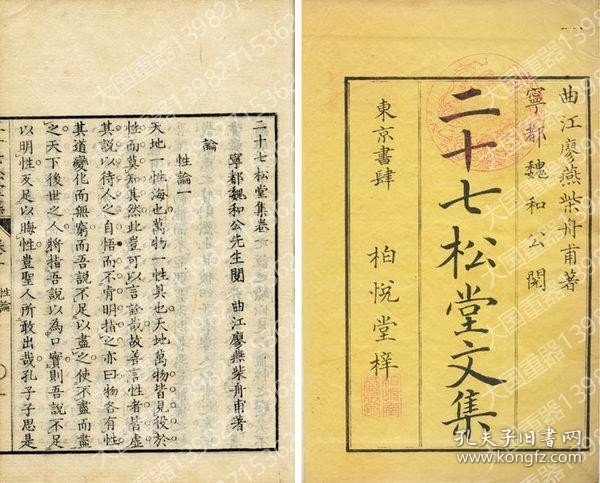 曲江廖燕柴舟甫著
寧都魏和公閱
二十七松堂文集
東京書肆
柏悅堂梓
二十七松堂集卷
寧都魏和公先生閱 曲江廖燕柴舟甫著
論
性論一
天地一性海也萬物一性具也天地萬物皆見役於
性而莫知其然此豈可以言詮哉故善言性者皆虛
其說以待人之自悟而不肯明指之亦曰物各有性
其道變化而無窮而吾說不足以盡之使不盡而盡
之天下後世之人將指吾說以為口實則吾說不足
以明性反足以晦性豈聖人所敢出哉孔子子思是
性論
大国重器13982715362
孔夫子旧书网
www.kongfz.com